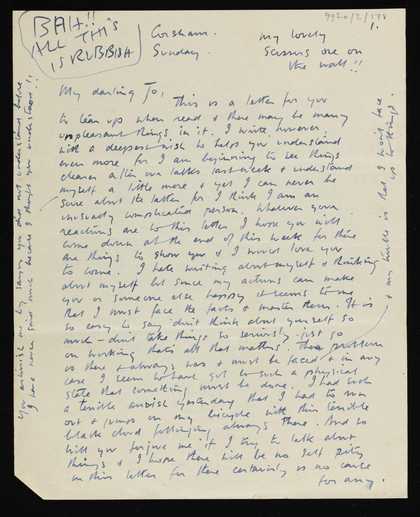 BAH!!
ALL THIS
IS RUBBISH
Corsham.
Sunday.
my lovely
Scissors are on
the wall!!
9920/2/178
1.
My darling Jo,
This is a letter for you
to tear up when read & there may be many
unpleasant things in it. I write, however,
with a deep wish to help you understand
even more for I am beginning to see things
clearer after our talks last week & understand
myself a little more & yet I can never be
sure about the latter for I think I am an
unusually complicated person. Whatever your
reactions are to this letter, I hope you will
come down at the end of this week for there
are things to show you & I would love you
to come. I hate writing about myself & thinking
about myself but since my actions can make
you or someone else happy it seems to me
that I must face the facts & master them. It is
so easy to say don't think about yourself so
much - don't take things so seriously - just go
on working that's all that matters. The problem
is there & always was & must be faced & in any
case I seem to have got to such a physical
state that something must be done. I had such
a terrible yesterday that I had to run
out & jump on my bicycle with this terrible
black cloud following always there. And so
will you forgive me if I try to talk about
things & I hope there will be no self pity
in this letter for there certainly is no cause
for any.
You astonish me by saying you did not understand before
I have never said much because I thought you understood!!
& my trouble is that I won't face
up to things.